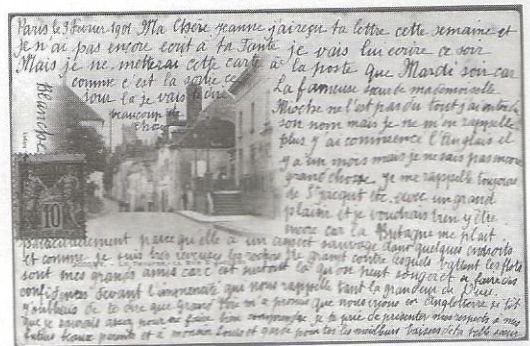 Paris le 3 Février 1901 Ma Chère Jeanne j'ai reçu ta lettre cette semaine et
je n'ai pas encore écrit à ta Tante je vais lui écrire ce soir
Mais je ne mettrai cette carte à la poste que Mardi soir car
comme c'est la sortie ce
soir là je vais te dire
beaucoup de
choses
La fameuse sœur de mademoiselle
Mioche ne l'est pas du tout j'ai entendu
son nom mais je ne m'en rappelle
plus j'ai commencé l'Anglais il
y a un mois mais je ne sais pas encore
grand chose je me rappelle toujours
de St Jacut etc. avec un grand
plaisir et je voudrais bien y être
encore car la Bretagne me plait
particulièrement parce qu'elle a un aspect sauvage dans quelques endroits
et comme je suis très rêveuse les rochers de granit contre lesquels les flots
sont mes grands amis car c'est surtout là qu'on peut songer et faire des
confidences devant l'immensité qui nous rappelle tant la grandeur de Dieu.
j'oubliais de te dire que grand m'a promis que nous irions en Angleterre si tôt
que je saurais assez pour me faire bien comprendre je te prie de présenter mes respects à mes
beaux parents et à Louis et garde pour toi les meilleurs baisers de ta
10